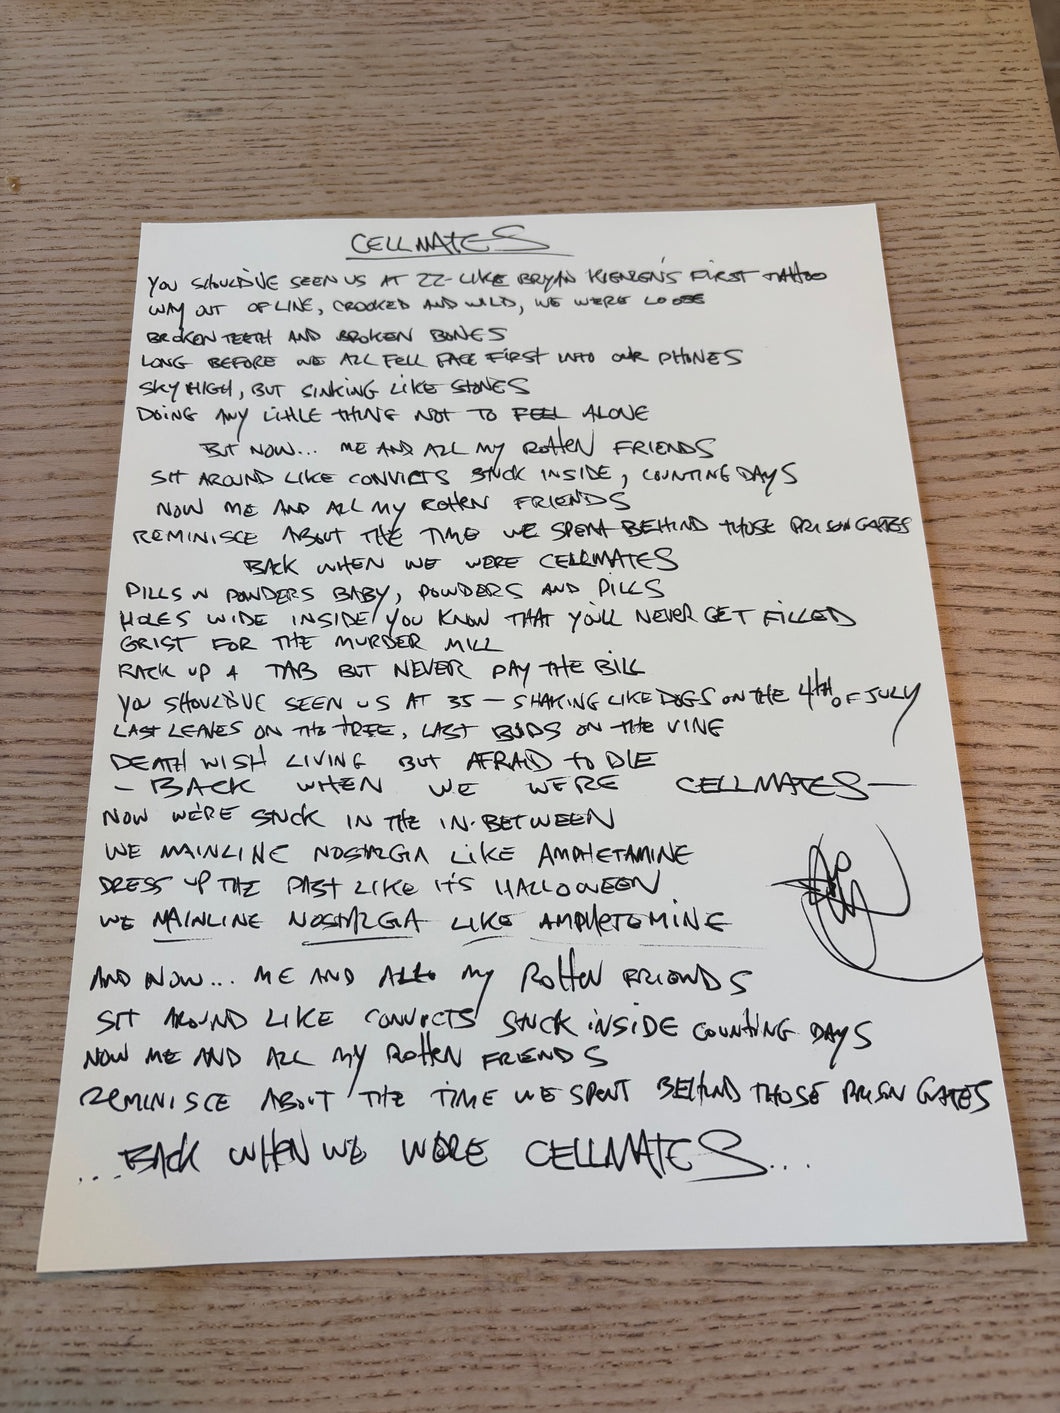 CELLMATES
YOU SHOULD'VE SEEN US AT 22 - LIKE BRYAN KIENLEN'S FIRST TATTOO
WAY OUT OF LINE, CROOKED AND WILD, WE WERE LOOSE
BROKEN TEETH AND BROKEN BONES
LONG BEFORE WE ALL FELL FACE FIRST INTO OUR PHONES
SKY HIGH, BUT SINKING LIKE STONES
DOING ANY LITTLE THING NOT TO FEEL ALONE
BUT NOW... ME AND ALL MY ROTTEN FRIENDS
SIT AROUND LIKE CONVICTS STUCK INSIDE, COUNTING DAYS
NOW ME AND ALL MY ROTTEN FRIENDS
REMINISCE ABOUT THE TIME WE SPENT BEHIND THOSE PRISON GATES
BACK WHEN WE WERE CELLMATES
PILLS N POWDERS BABY, POWDERS AND PILLS
HOLES WIDE INSIDE YOU KNOW THAT YOU'LL NEVER GET FILLED
GRIST FOR THE MURDER MILL
RACK UP A TAB BUT NEVER PAY THE BILL
YOU SHOULD'VE SEEN US AT 35 - SHAKING LIKE DOGS ON THE 4TH OF JULY
LAST LEAVES ON THE TREE, LAST BUDS ON THE VINE
DEATH WISH LIVING BUT AFRAID TO DIE
- BACK WHEN WE WERE CELLMATES -
NOW WE'RE STUCK IN THE IN-BETWEEN
WE MAINLINE NOSTALGIA LIKE AMPHETAMINE
DRESS UP THE PAST LIKE IT'S HALLOWEEN
WE MAINLINE NOSTALGIA LIKE AMPHETAMINE
AND NOW... ME AND ALL MY ROTTEN FRIENDS
SIT AROUND LIKE CONVICTS STUCK INSIDE COUNTING DAYS
NOW ME AND ALL MY ROTTEN FRIENDS
REMINISCE ABOUT THE TIME WE SPENT BEHIND THOSE PRISON GATES
...BACK WHEN WE WERE CELLMATES...